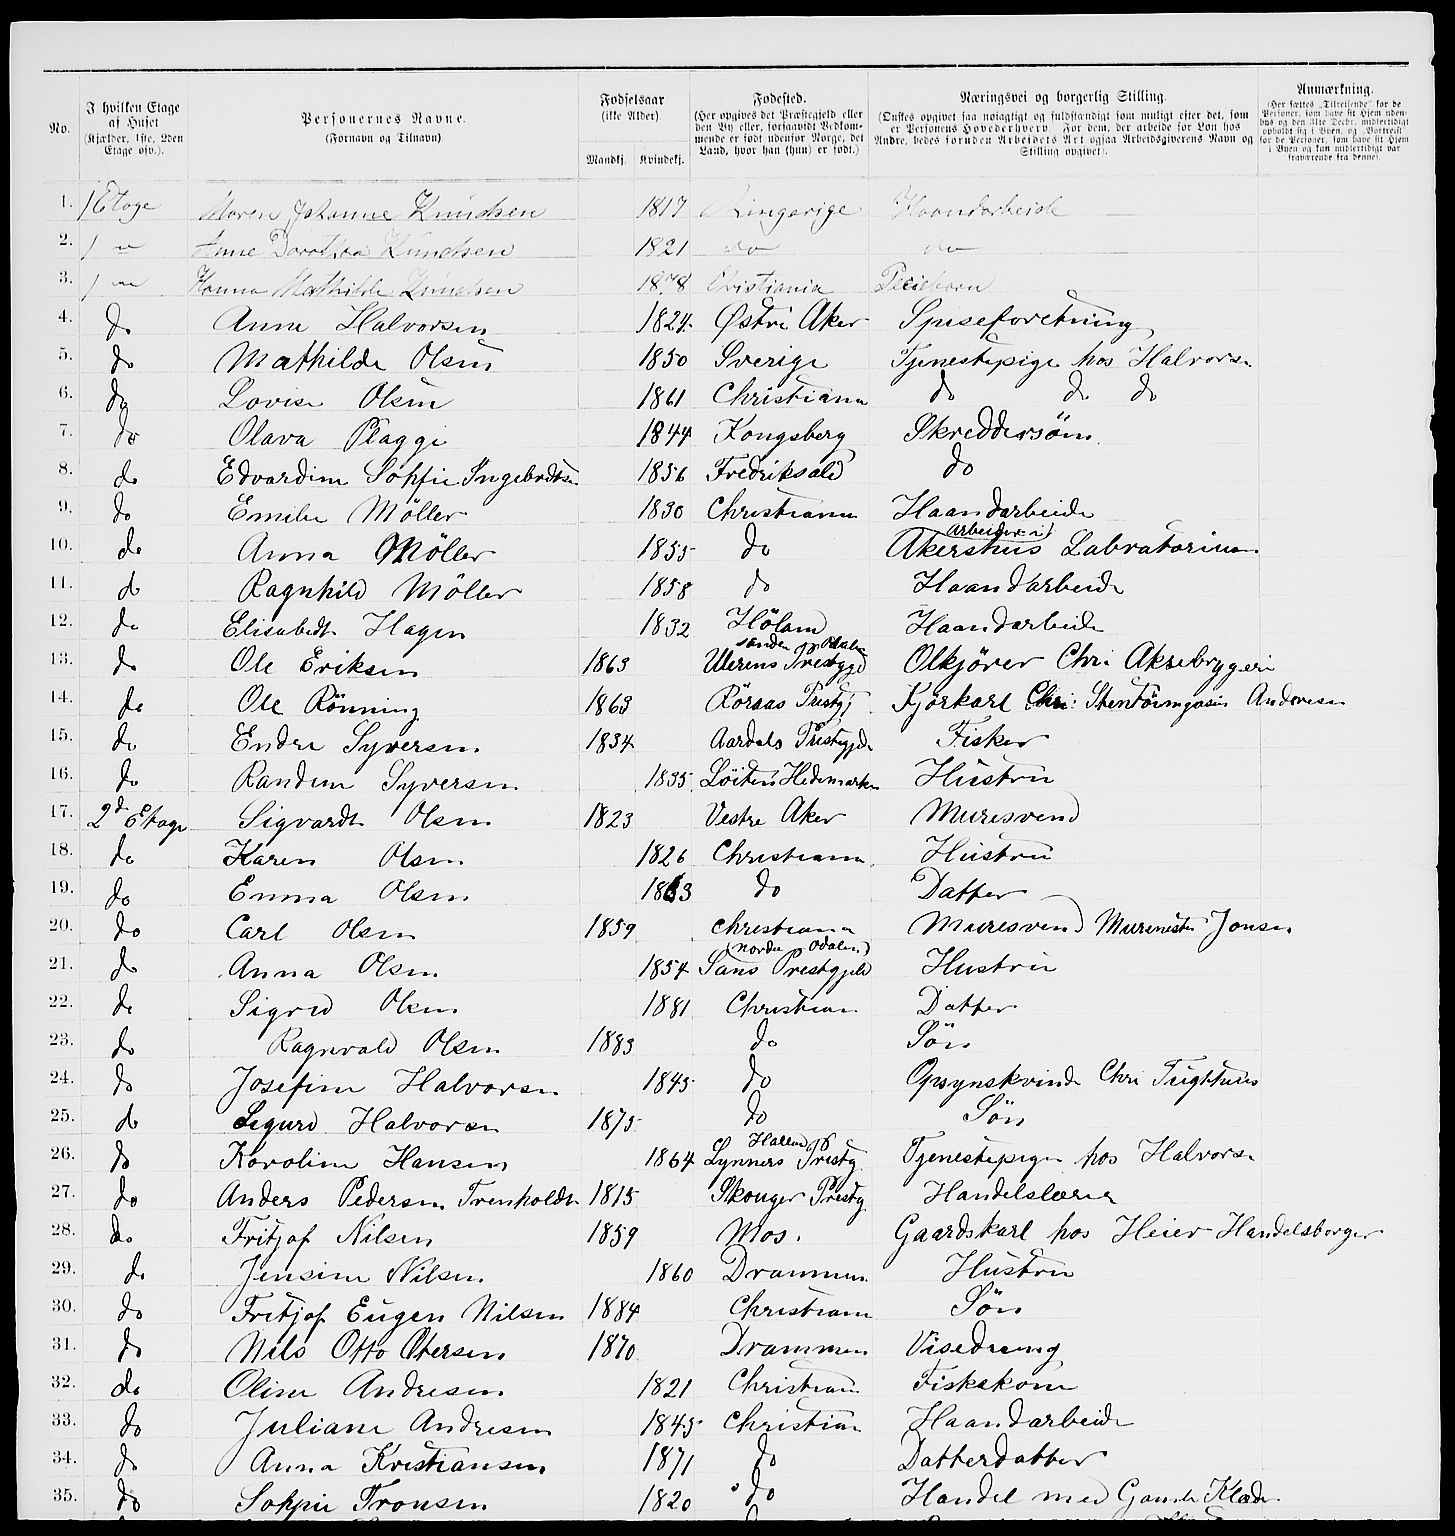 No. | I hvilken Etage af Huset (Kjælder, 1ste, 2den Etage osv.). | Personernes Navne. (Fornavn og Tilnavn). | Fødselsaar (ikke Alder). Mandkj. Kvindekj. | Fødested. (Her opgives det Præstegjeld eller den By eller, forsaavidt Vedkommende er født udenfor Norge, det Land, hvor han (hun) er født.) | Næringsvei og borgerlig Stilling. (Ønskes opgivet saa nøiagtigt og fuldstændigt som muligt efter det, som er Personens Hovederhverv. For dem, der arbeide for Løn hos Andre, bedes foruden Arbeidets Art ogsaa Arbeidsgiverens Navn og Stilling opgivet). | Anmærkning. (Her sættes „Tilreisende" for de Personer, som have sit Hjem udenbys og den 31te Decbr. midlertidigt opholdt sig i Byen, og „Bortreist" for de Personer, som have sit Hjem i Byen og kun midlertidigt var fraværende fra denne).
1. 1 Etage Maren Johanne Knudsen 1817 Ringerige Haandarbeide
2. 1 " Anne Dorothea Knudsen 1821 do do
3. 1 " Hanna Mathilde Knudsen 1878 Christiania Pleiebarn
4. do Anne Halvorsen 1824 Østre Aker Spiseforetning
5. do Mathilde Olsen 1850 Sverige Tjenestepige hos Halvorsn
6. do Lovise Olsen 1861 Christiania do do do
7. do Olava Plaggi 1844 Kongsberg Skreddersøm
8. do Edvardine Sophie Ingebretsn 1856 Fredriksald do
9. do Emilie Möller 1830 Christiania Haandarbeide
10. do Anna Möller 1855 do Akershus arbeider i Labratorium
11. do Ragnhild Möller 1858 do Haandarbeide
12. do Elisabeth Hagen 1832 Höland Haandarbeide
13. do Ole Eriksen 1863 Ulerens Prestgjd sønder Odalen Olkjörer Chri Aksebryggeri
14. do Ole Rönning 1863 Rörsas Prestgj Kjörkarl Chri: Andersen
15. do Endre Syversen 1834 Aardals Prestegjeld Fisker
16. do Randine Syversen 1835 Löiten Hedemarken Hustru
17. 2d Etage Sigvardt Olsen 1823 Vestre Aker Muresvend
18. do Karen Olsen 1826 Christiania Hustru
19. do Emma Olsen 1863 do Datter
20. do Carl Olsen 1859 Christiania Muresvend Murmester Jonsen
21. do Anna Olsen 1854 (nordre Odalen) Sans Prestgjeld Hustru
22. do Sigrid Olsen 1881 Christian Datter
23. do Ragnvald Olsen 1883 do Sön
24. do Josefine Halvorsn 1845 do Opsynskvinde Chri Tugthus
25. do Sigurd Halvorsn 1875 do Sön
26. do Karoline Hansen 1864 Lynners Prestg Tjenestepige hos Halvorsn
27. do Anders Pedersen Trenholdt 1815 Skouger Prestg Handelslærer
28. do Fritjof Nilsen 1859 Mos. Gaardskarl hos Heier Handelsborger
29. do Jensine Nilsen 1860 Drammen Hustru
30. do Fritjof Eugen Nilsen 1884 Christiania Sön
31. do Nils Otto Otersen 1870 Drammen Visedreng
32. do Oline Andresen 1821 Christian Fiskekone
33. do Juliane Andresen 1845 Christian Haandarbeide
34. do Anna Kristiansen 1871 do Datterdatter
35. do Sophie Tronsen 1820 do Handel med Gamle Klæder